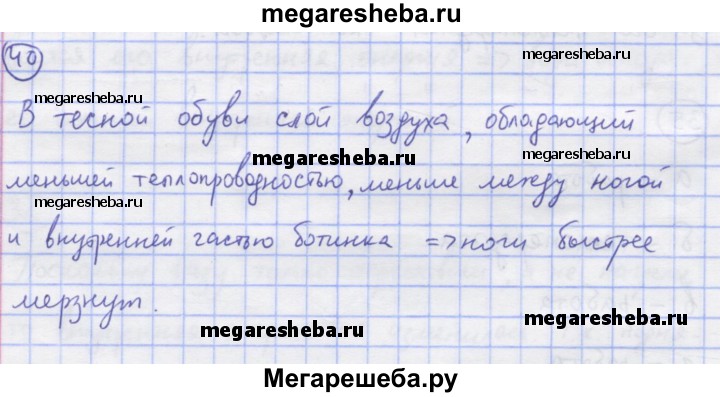 megaresheba.ru
40
megaresheba.ru
megaresheba.ru
В тесной обуви слой воздуха, обладающий
megaresheba.ru
меньшей теплопроводностью, меньше между ногой
megaresheba.ru
megaresheba.ru
и внутренней частью ботинка => ноги быстрее
мерзнут.
megaresheba.ru
megaresheba.ru
Мегарешеба.ру